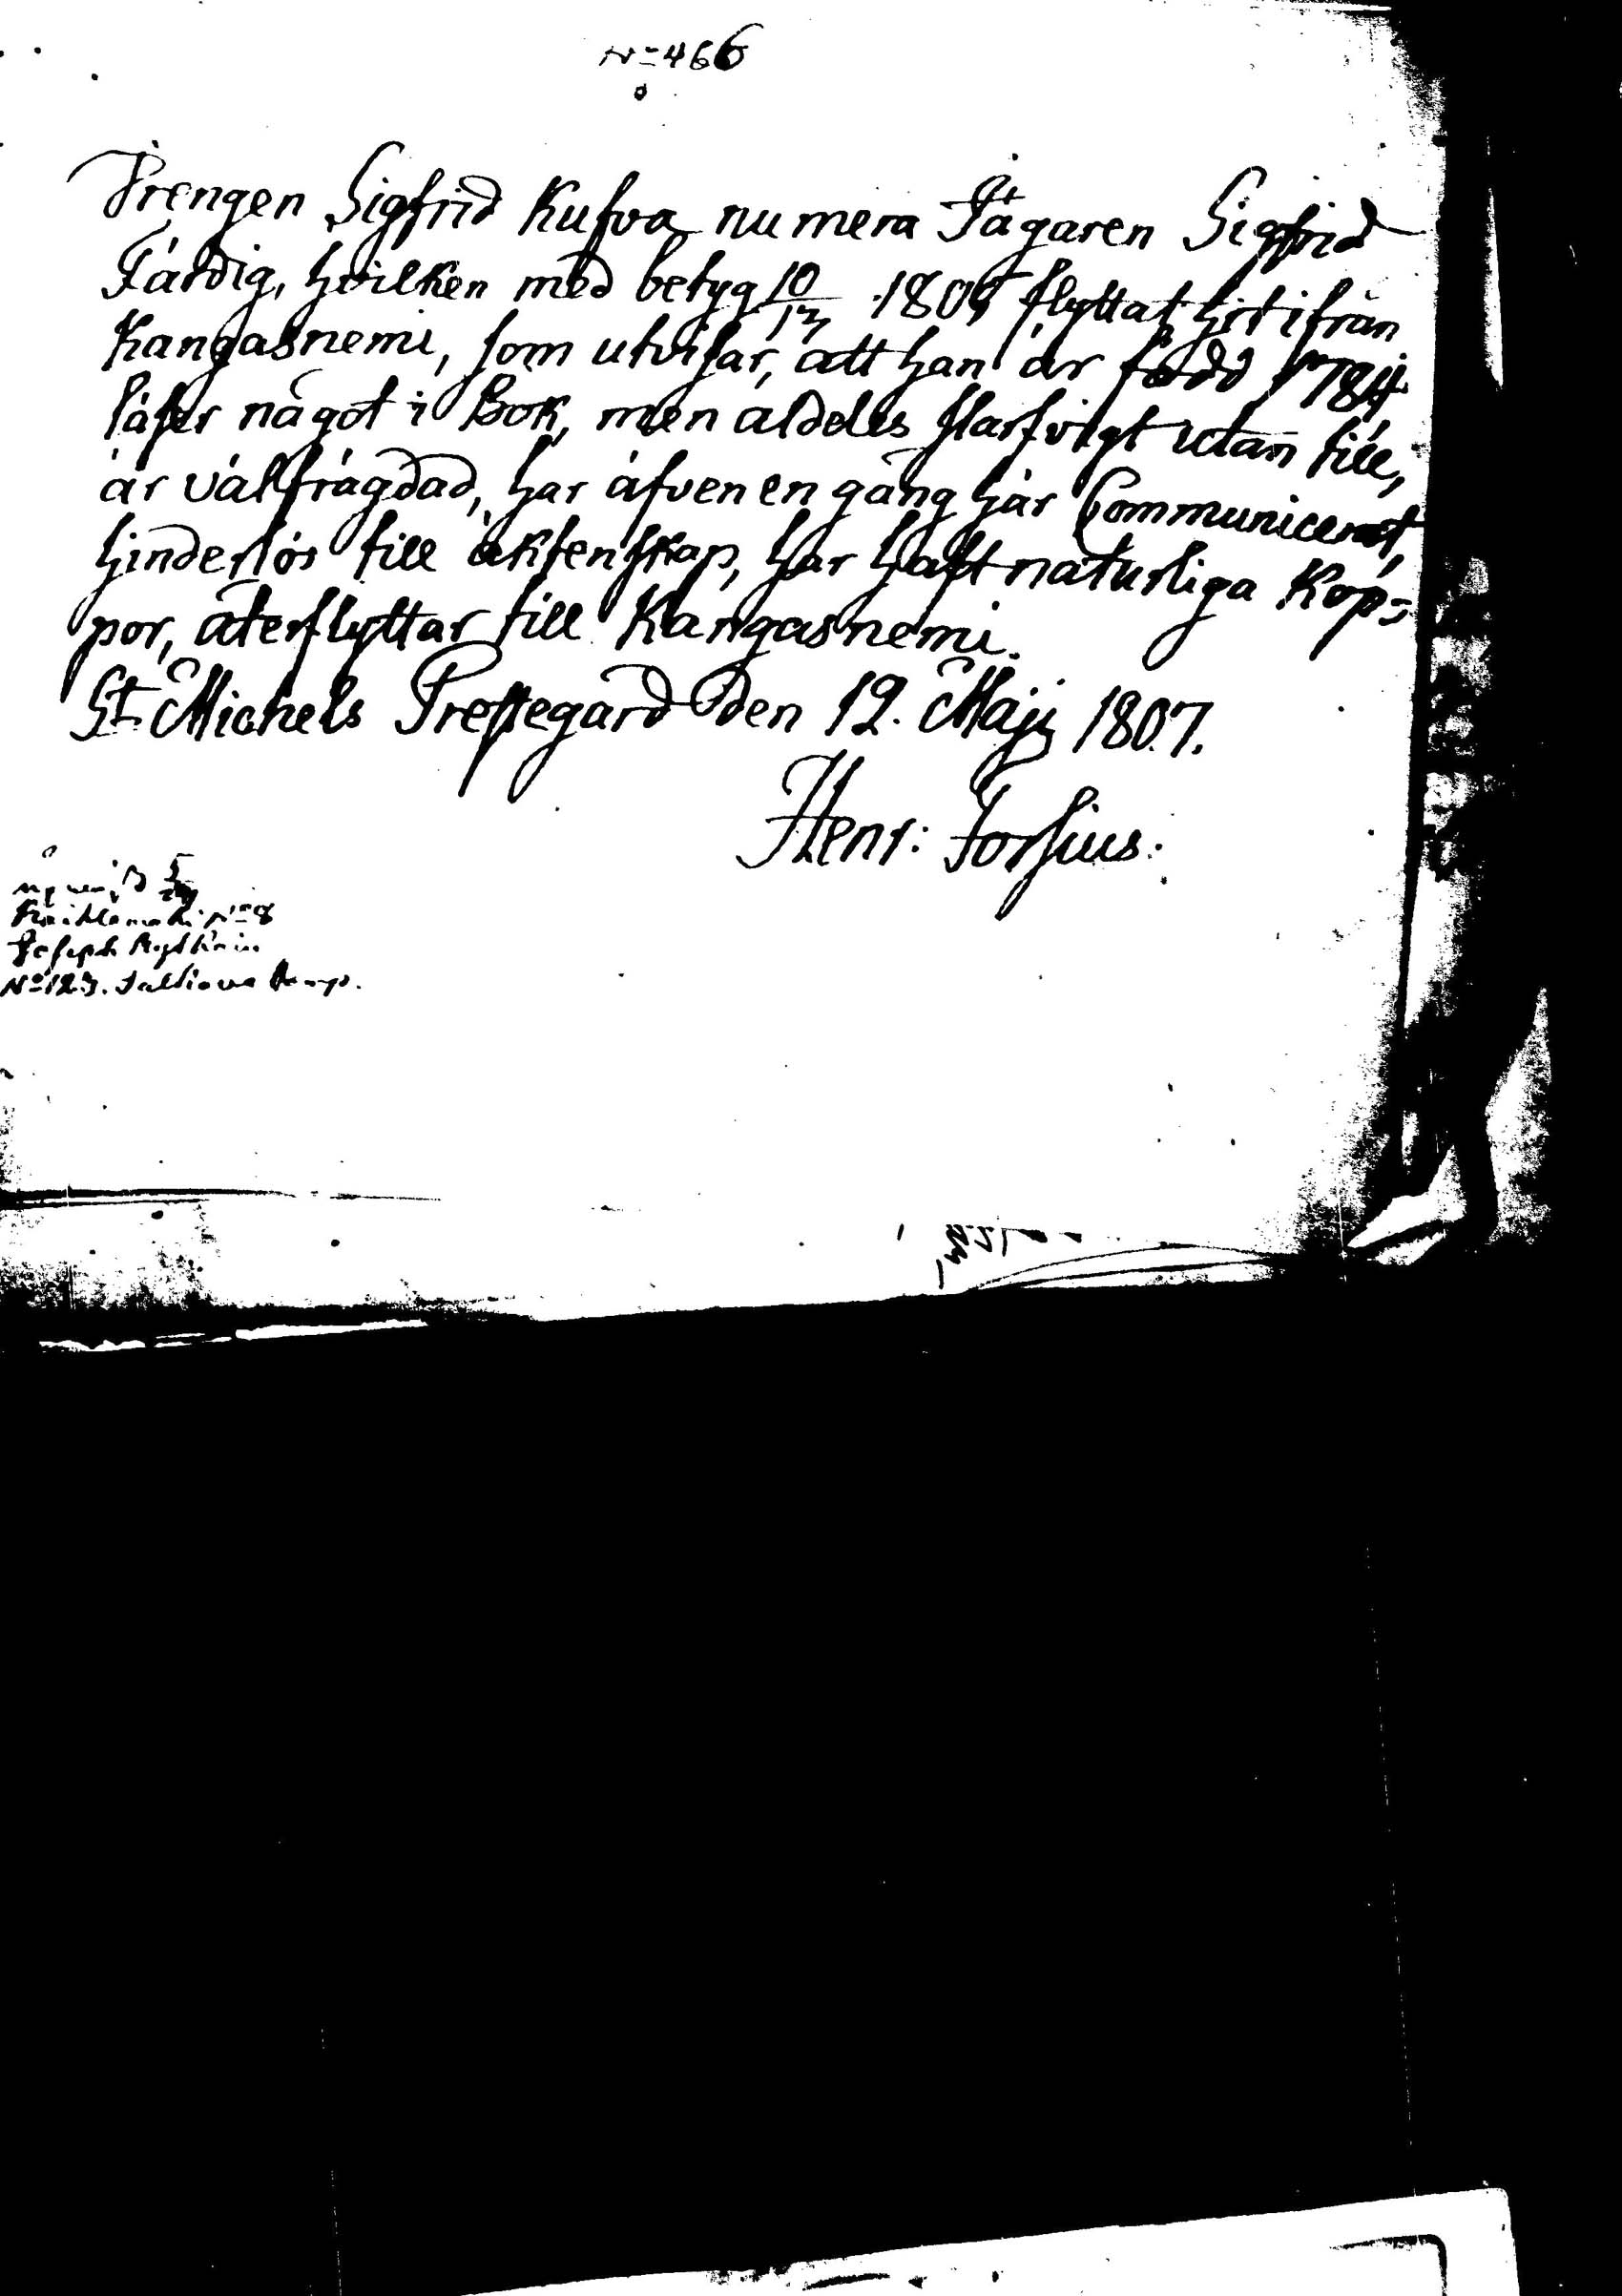 No 466
Drengen Sigfrid Kufva numera Jägaren Sigfrid
Färdig, hvilken med betyg 10/13 1805 flyttat hit ifrån
Kangasnemi, som utvisar, att han är född 1784
läser något i Bok, men aldeles slarfvigt utan till,
är välfrägdad, har äfven en gång här Communicerat,
hinderlös till äktenskap, har haft naturliga Kop=
por, återflyttar till Kangasnemi.
St Michels Prestegård den 12. Maji 1807.
Henr: Forsius.
No 8
Joseph
No 123.